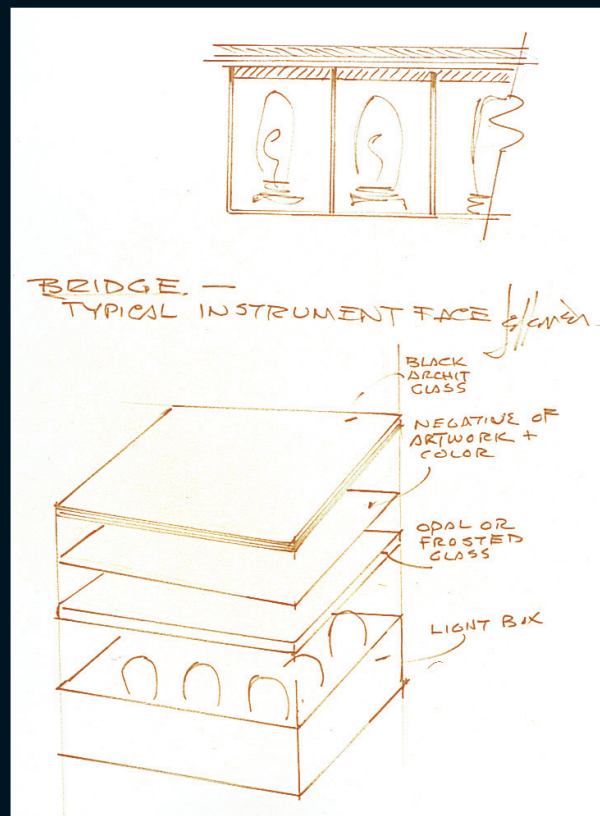 BRIDGE —
TYPICAL INSTRUMENT FACE
BLACK
ARCHIT
GLASS
NEGATIVE OF
ARTWORK +
COLOR
OPAL OR
FROSTED
GLASS
LIGHT BOX